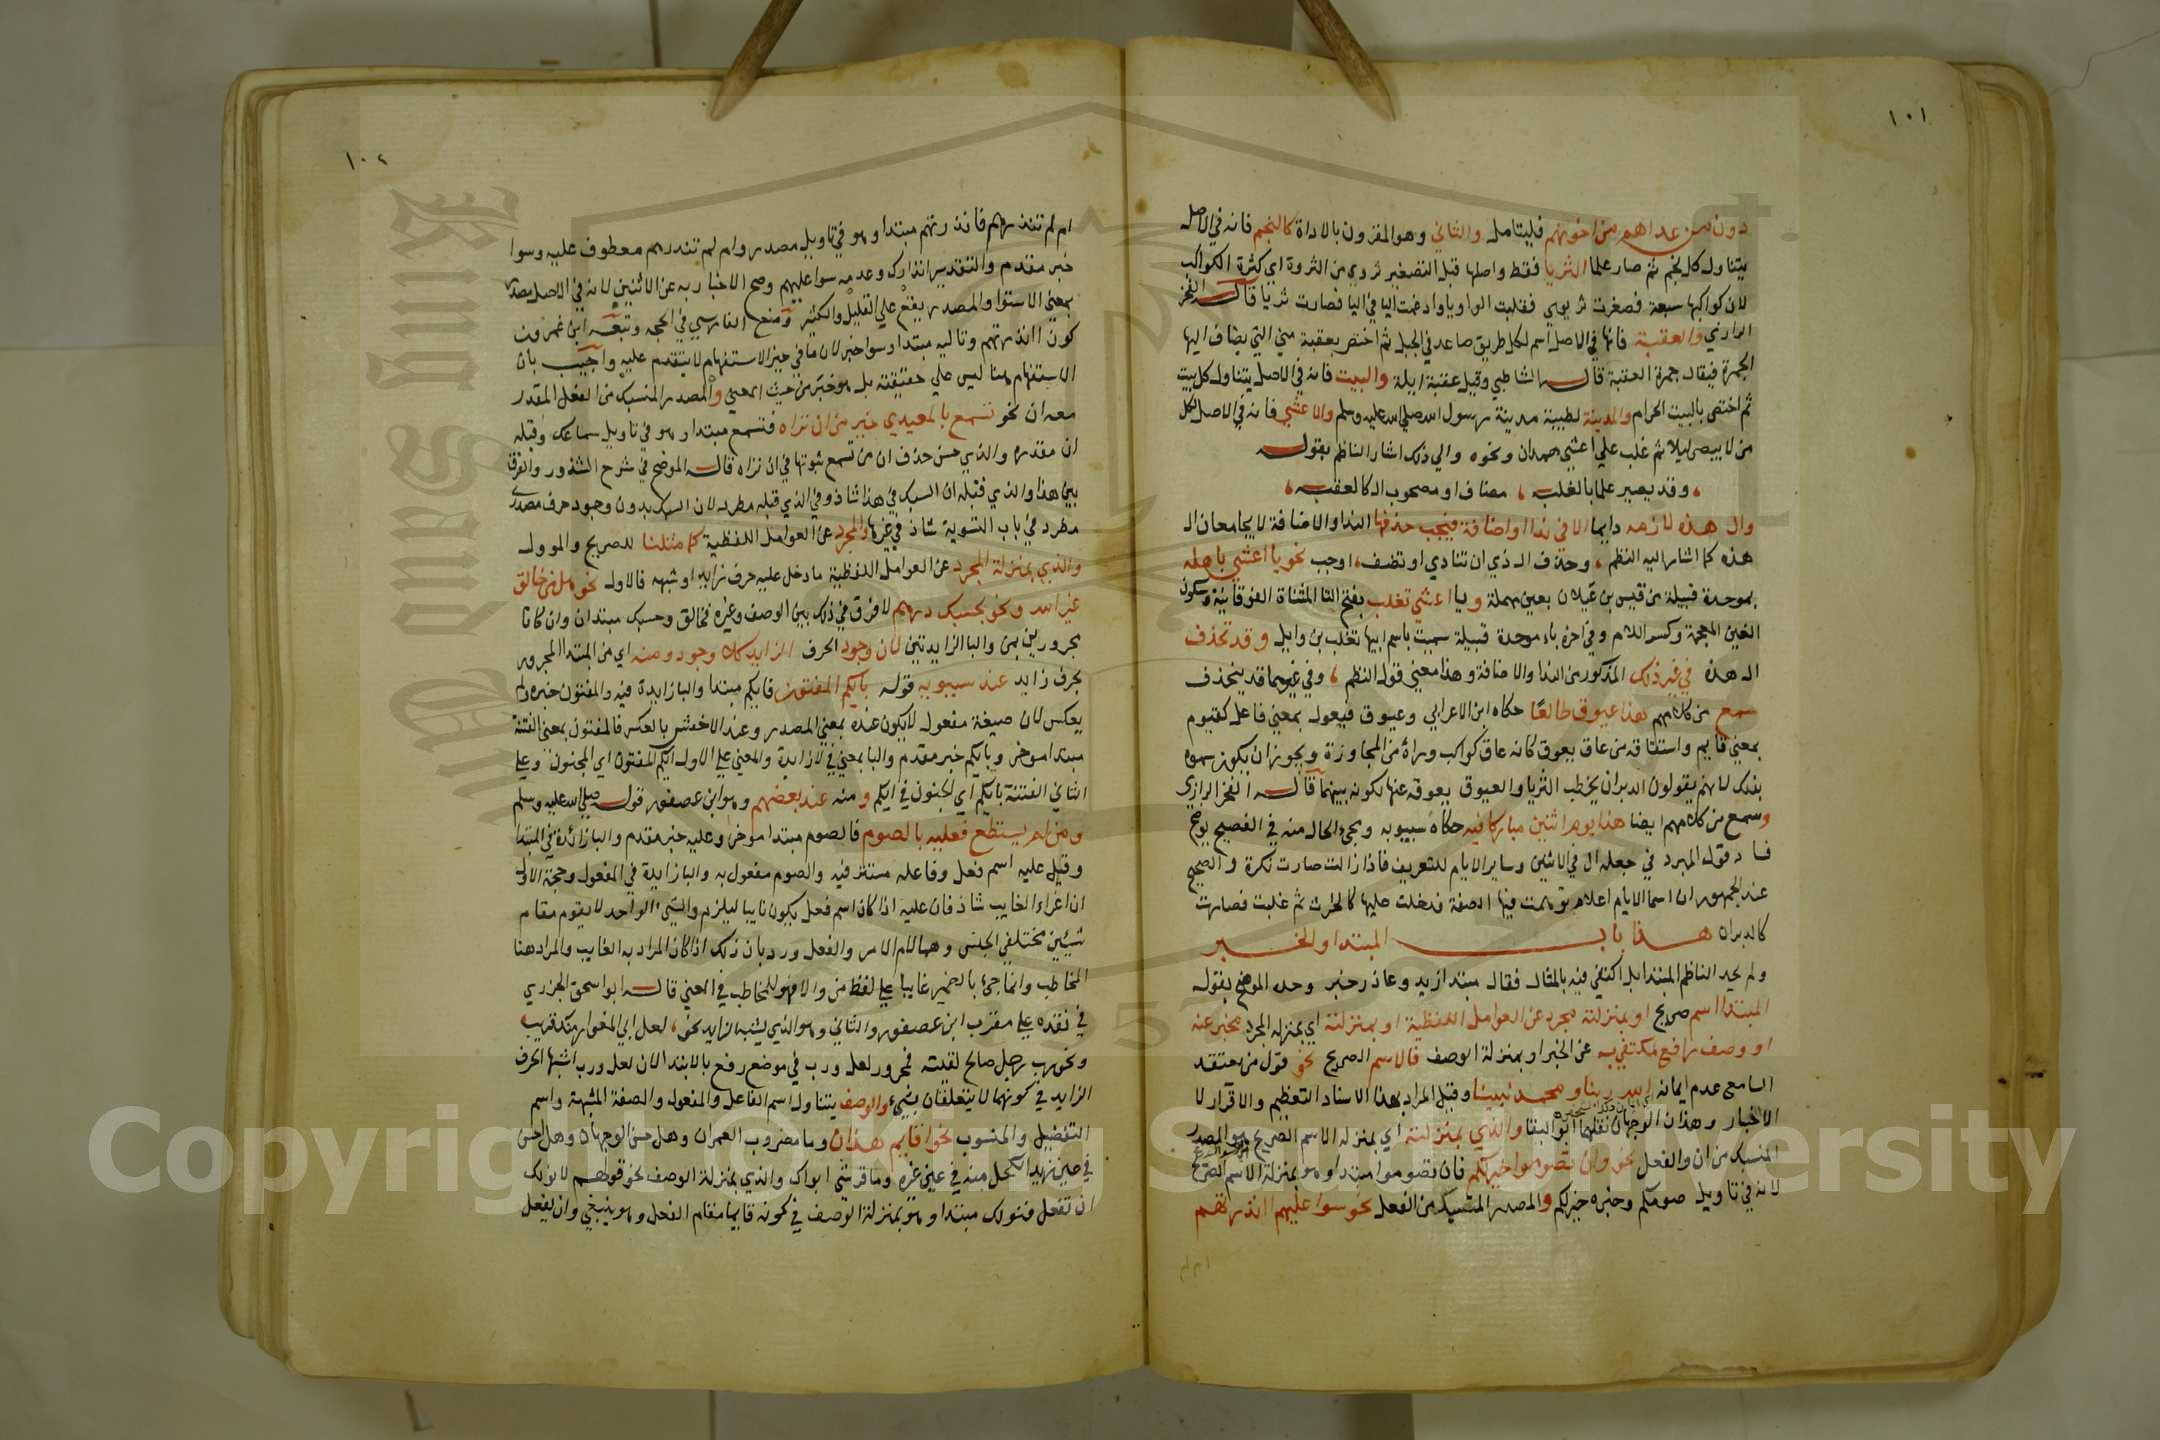 ١٠١
دون من عداهم من اخوتهم فليتامل والثاني وهو المقرون بالاداة كالنجم فانه في الاصل
يتناول كل نجم ثم صار علما الثريا فقط واصلها قبل التصغير ثروي من الثروة اي كثرة الكواكب
لان كواكبها سبعة فصغرت ثريوي فقلبت الواو يا وادغمت اليا في اليا فصارت ثريا قال الفخر
الرازي والعقبة فانها في الاصل اسم لكل طريق صاعد في الجبل ثم اختص بعقبة مني التي يضاف اليها
الجمرة فيقال جمرة العقبة قال الشاطبي وقيل عقبة ايلة والبيت فانه في الاصل يتناول كل بيت
ثم اختص بالبيت الحرام والمدينة لطيبة مدينة رسول الله صلي الله عليه وسلم والاعشي فانه في الاصل لكل
من لا يبصر ليلا ثم غلب علي اعشي همدان ونحوه والي ذلك اشار الناظم بقوله
وقد يصير علما بالغلبه ، مضاف او مصحوب ال كالعقبه
وال هذه لازمه دايما الا في ندا او اضافة فيجب حذفها الندا والاضافة لا يجامعان ال
هذه كما اشار اليه النظم ، وحذف ال ذي ان تنادي او تضف ، اوجب نحو يا اعشي باهله
بموحدة قبيلة من قيس بن عيلان بعين مهملة ويا اعشي تغلب بفتح التا المثناة الفوقانية وسكون
الغين المعجمة وكسر اللام وفي اخره باء موحدة قبيلة سميت باسم ابيها تغلب بن وايل وقد تحذف
ال هذه في غير ذلك المذكور من الندا والاضافة وهذا معني قول النظم ، وفي غيرهما قد ينحذف
سمع من كلامهم هذا عيوق طالعا حكاه ابن الاعرابي وعيوق فيعول بمعني فاعل كقيوم
بمعني قايم واشتقاقه من عاق يعوق كانه عاق كواكب وراه من المجاوزة ويجوز ان يكون سموه
بذلك لانهم يقولون الدبران يخطب الثريا والعيوق يعوقه عنها لكونه بينهما قال الفخر الرازي
وسمع من كلامهم ايضا هذا يوم اثنين مباركا فيه حكاه سيبويه ومجيء الحال منه في الفصيح يوضح
فساد قول المبرد في جعله ال في الاثنين وساير الايام للتعريف فاذا زالت صارت نكرة والصحيح
عند الجمهور ان اسما الايام اعلام توهمت فيها الصفة فدخلت عليها كالحرث ثم غلبت فصارت
كالدبران هذا باب المبتدا والخبر
ولم يحد الناظم المبتدا بل اكتفي فيه بالمثال فقال مبتدا زيد وعاذر خبر وحده الموضح بقوله
المبتدا اسم صريح او بمنزلته مجرد عن العوامل اللفظية او بمنزلته اي بمنزله المجرد مخبر عنه
او وصف رافع لمكتفي به عن الخبر او بمنزلة الوصف فالاسم الصريح نحو قول من يعتقد
السامع عدم ايمانه الله ربنا ومحمد نبينا وقيل المراد بهذا الاسناد التعظيم والاقرار لا
الاخبار وهذان الوجهان نقلهما ابو البقا والذي بمنزلته اي بمنزله الاسم الصريح هو المصدر
المنسبك من ان والفعل نحو وان تصوموا خير لكم فان تصوموا مبتدا وهو بمنزلة الاسم الصريح
لانه في تاويل صومكم وخبره خير لكم والمصدر المنسبك من الفعل نحو سوا عليهم اانذرتهم
ام لم
١٠٢
ام لم تنذرهم فانذرتهم مبتدا وهو في تاويل مصدر وام لم تنذرهم معطوف عليه وسوا
خبر مقدم والتقدير انذارك وعدمه سوا عليهم وصح الاخبار به عن الاثنين لانه في الاصل مصدر
بمعني الاستوا والمصدر يقع علي القليل والكثير ومنع الفارسي في الحجه وتبعه ابن عمرون
كون اانذرتهم وتاليه مبتدا وسوا خبر لان ما في حيز الاستفهام لا يتقدم عليه واجيب بان
الاستفهام هنا ليس علي حقيقته بل هو خبر من حيث المعني والمصدر المنسبك من الفعل المقدر
معه ان نحو تسمع بالمعيدي خير من ان تراه فتسمع مبتدا وهو في تاويل سماعك وقبله
ان مقدره والذي حسن حذف ان من تسمع ثبوتها في ان تراه قال الموضح في شرح الشذور والفرق
بين هذا والذي قبله ان السبك في هذا شاذ وفي الذي قبله مطرد لان السبك بدون وجود حرف مصدري
مطرد في باب التسوية شاذ في غيرها والمجرد عن العوامل اللفظية كما مثلنا للصريح والموول
والذي بمنزلة المجرد عن العوامل اللفظية ما دخل عليه حرف زايد او شبهه فالاول نحو هل من خالق
غير الله ونحو بحسبك درهم لا فرق في ذلك بين الوصف وغيره فخالق وحسبك مبتدان وان كانا
مجرورين بمن والبا الزايدتين لان وجود الحرف الزايد كلا وجود ومنه اي من المبتدا المجرور
بحرف زايد عند سيبويه قوله بايكم المفتون فايكم مبتدا والبا زايدة فيه والمفتون خبره ولم
يعكس لان صيغة مفعول لا يكون عنده بمعني المصدر وعند الاخفش بالعكس فالمفتون بمعني الفتنة
مبتدا موخر وبايكم خبر مقدم والبا بمعني في لا زايدة والمعني علي الاول ايكم المفتون اي المجنون وعلي
الثاني الفتنة بايكم اي الجنون في ايكم ومنه عند بعضهم وهو ابن عصفور قوله صلي الله عليه وسلم
ومن لم يستطع فعليه بالصوم فالصوم مبتدا موخر وعليه خبر مقدم والبا زائدة في المبتدا
وقيل عليه اسم فعل وفاعله مستتر فيه والصوم مفعول به والبا زايدة في المفعول وحجة الاول
ان اغراء الغايب شاذ فان عليه اذا كان اسم فعل يكون نايبا ليلزم والشيء الواحد لا يقوم مقام
شيئين مختلفي الجنس وهما لام الامر والفعل ورد بان ذلك اذا كان المراد به الغايب والمراد هنا
المخاطب وانما جئ بالضمير غايبا علي لفظ من والا فهو للمخاطب في المعني قال ابو اسحق الجزري
في نقده علي مقرب ابن عصفور والثاني وهو الذي يشبه الزايد نحو ، لعل ابي المغوار منك قريب
ونحو رب رجل صالح لقيته فمجرور لعل ورب في موضع رفع بالابتدا لان لعل ورب اشبها الحرف
الزايد في كونهما لا يتعلقان بشيء والوصف يتناول اسم الفاعل والمفعول والصفة المشبهة واسم
التفضيل والمنسوب نحو اقايم هذان وما مضروب العمران وهل حسن الوجهان وهل احسن
في عين زيد الكحل منه في عين غيره وما قرشي ابواك والذي بمنزلة الوصف نحو قولهم لا نولك
ان تفعل فنولك مبتدا وهو بمنزلة الوصف في كونه قايما مقام الفعل وهو ينبغي وان تفعل